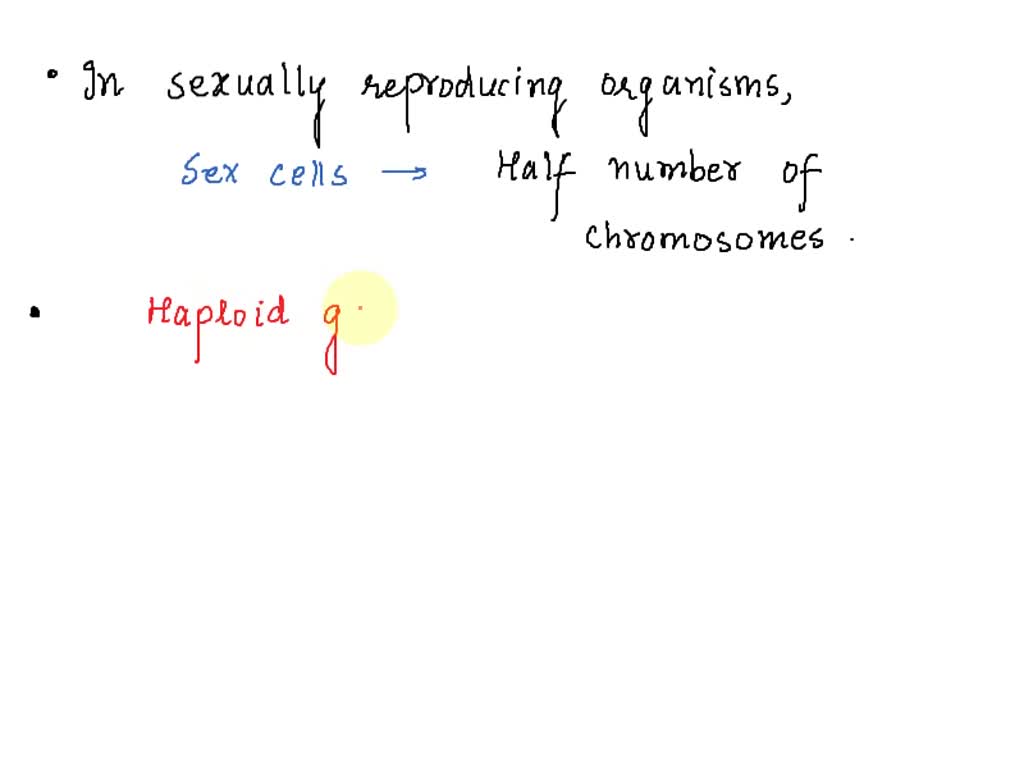 • In sexually reproducing organisms,
Sex cells → Half number of
chromosomes.
• Haploid g